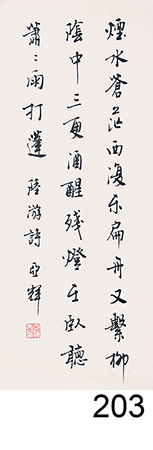 煙水蒼茫西復东扁舟又繫柳
陰中三更酒醒残燈在臥聽
蕭〻雨打蓬 陸游詩 亚輝
203